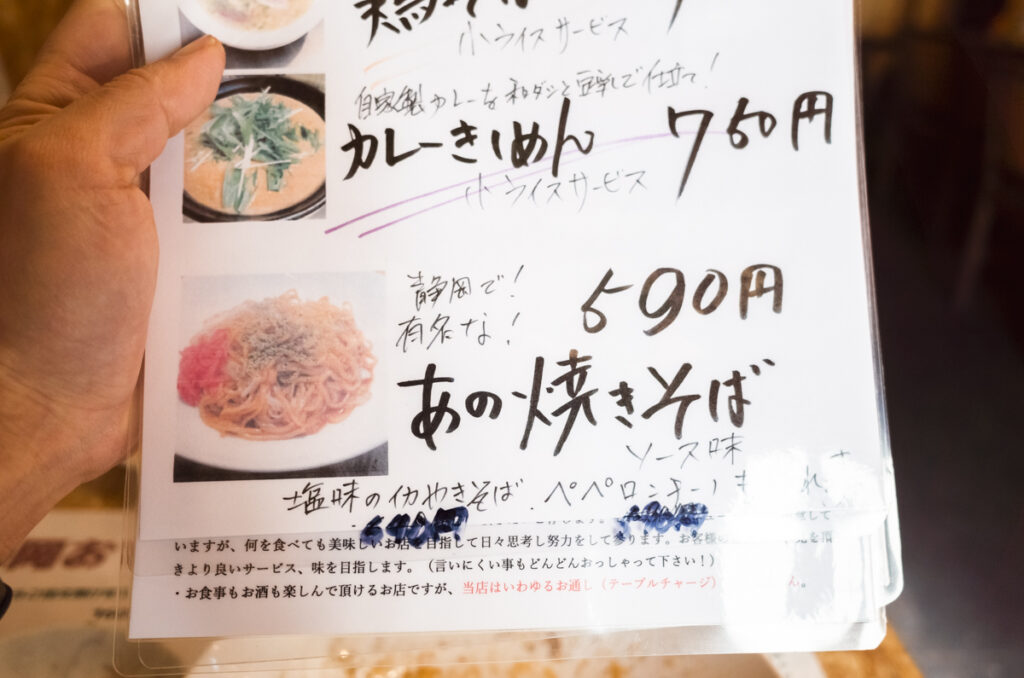 小ライスサービス
自家製カレーを和ダシと豆乳で仕立て！
カレーきしめん 750円
小ライスサービス
静岡で！
有名な！
590円
あの焼きそば
ソース味
塩味のイカやきそば、ペペロンチーノも
いますが、何を食べても美味しいお店を目指して日々思考し努力をして参ります。お客様の
きより良いサービス、味を目指します。（言いにくい事もどんどんおっしゃって下さい！）
・お食事もお酒も楽しんで頂けるお店ですが、当店はいわゆるお通し（テーブルチャージ）